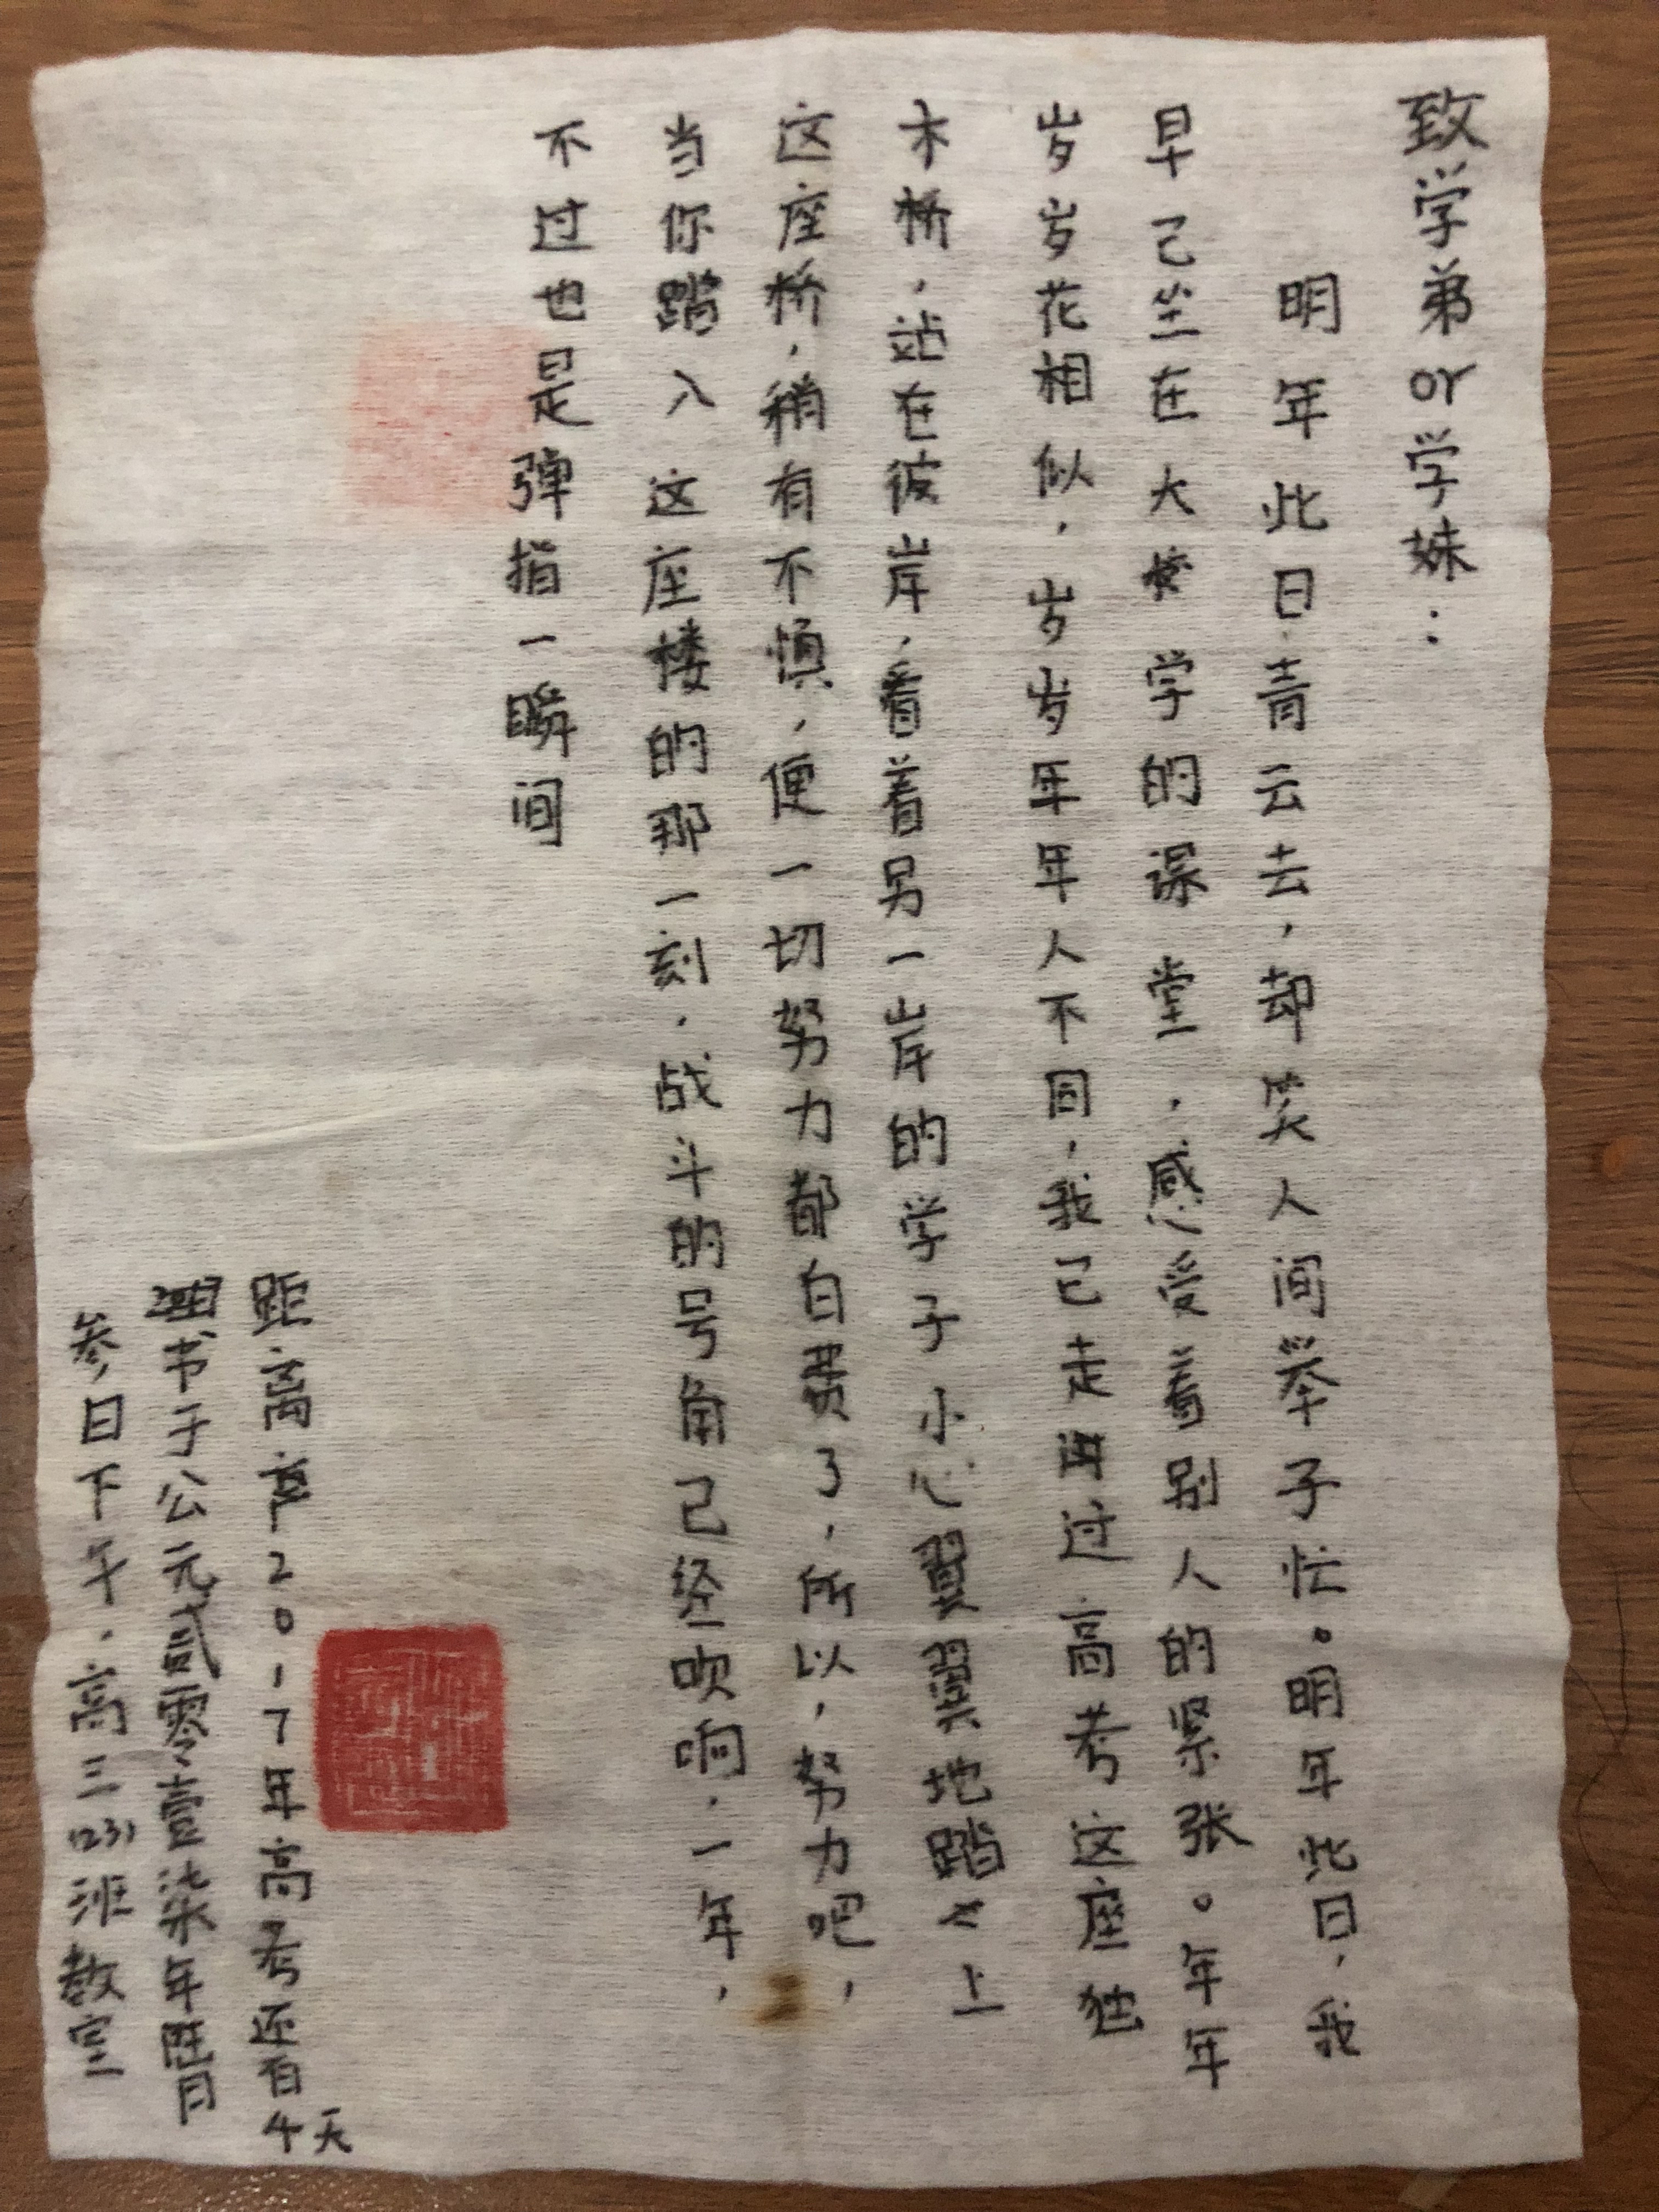 致学弟or学妹：
明年此日青云去，却笑人间举子忙。明年此日，我
早已坐在大学的课堂，感受着别人的紧张。年年
岁岁花相似，岁岁年年人不同，我已走过高考这座独
木桥，站在彼岸，看着另一岸的学子小心翼翼地踏上
这座桥，稍有不慎，便一切努力都白费了，所以，努力吧，
当你踏入这座楼的那一刻，战斗的号角已经吹响，一年，
不过也是弹指一瞬间
距离2017年高考还有4天
书于公元贰零壹柒年月
参日下午，高三（23）班